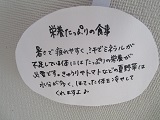 栄養たっぷりの食事
暑さで損のやすく、ミネビタミネラルが
不足している体にはたっぷりの栄養が
必要です。きゅうりやトマトなどの夏野菜は
水分が多く、ほてった体を冷やして
くれますよ♪